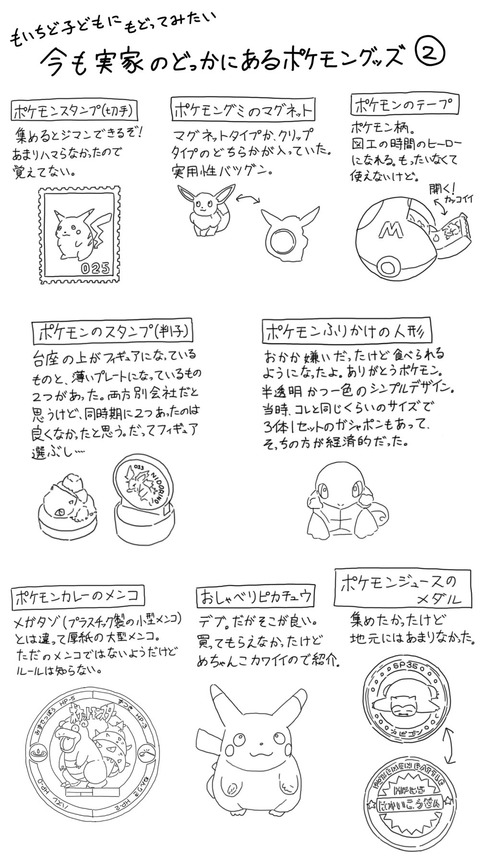 もいちど子どもにもどってみたい
今も実家のどっかにあるポケモングッズ②
ポケモンスタンプ(切手)
集めるとジマンできるぞ!
あまりハマらなかったので
覚えてない。
025
ポケモングミのマグネット
マグネットタイプか、クリップ
タイプのどちらかが入っていた。
実用性バツグン。
ポケモンのテープ
ポケモン柄。
図工の時間のヒーロー
になれる。もったいなくて
使えないけど。
開く!
カッコイイ
M
ポケモンのスタンプ(判子)
台座の上がフィギュアになっている
ものと、薄いプレートになっているもの
2つがあった。両方別会社だと
思うけど、同時期に2つあったのは
良くなかったと思う。だってフィギュア
選ぶし…
033
NIDORINO
ポケモンふりかけの人形
おかか嫌いだったけど食べられる
ようになったよ。ありがとうポケモン。
半透明かつ一色のシンプルデザイン。
当時、コレと同じくらいのサイズで
3体1セットのガシャポンもあって、
そっちの方が経済的だった。
ポケモンカレーのメンコ
メガタゾ(プラスチック製の小型メンコ)
とは違って厚紙の大型メンコ。
ただのメンコではないようだけど
ルールは知らない。
おしゃべりピカチュウ
デブ。だがそこが良い。
買ってもらえなかったけど
めちゃんこカワイイので紹介。
ポケモンジュースの
メダル
集めたかったけど
地元にはあまりなかった。
カビゴン